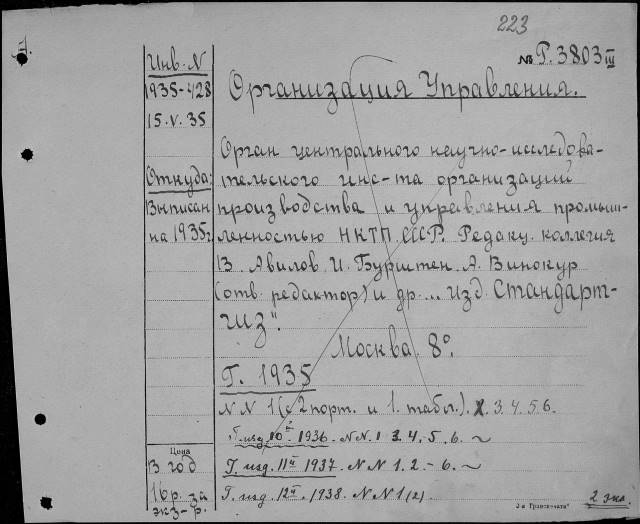 223
№ Р. 3803 III
Инв. N
1935-428
15.V.35
Откуда:
Выписан
на 1935 г.
Организация Управления.
Орган центрального научно-исследова-
тельского инс-та организаций
производства и управления промыш-
ленностью НКТП СССР. Редакц. коллегия
В. Авилов, И. Бурштен, А. Винокур
(отв. редактор) и др... Изд. Стандарт-
гиз".
Москва. 8°.
Г. 1935
N N 1 (с 2 порт. и 1. табл.). 3. 4. 5. 6.
изд. 10й 1936. N N. 1 3. 4. 5. 6. ~
Г. изд. 11й 1937. N N 1. 2. - 6. ~
Г. изд. 12й. 1938. N N 1 (2).
Цена
В год
16 р. за
экз-р.
2 экз.